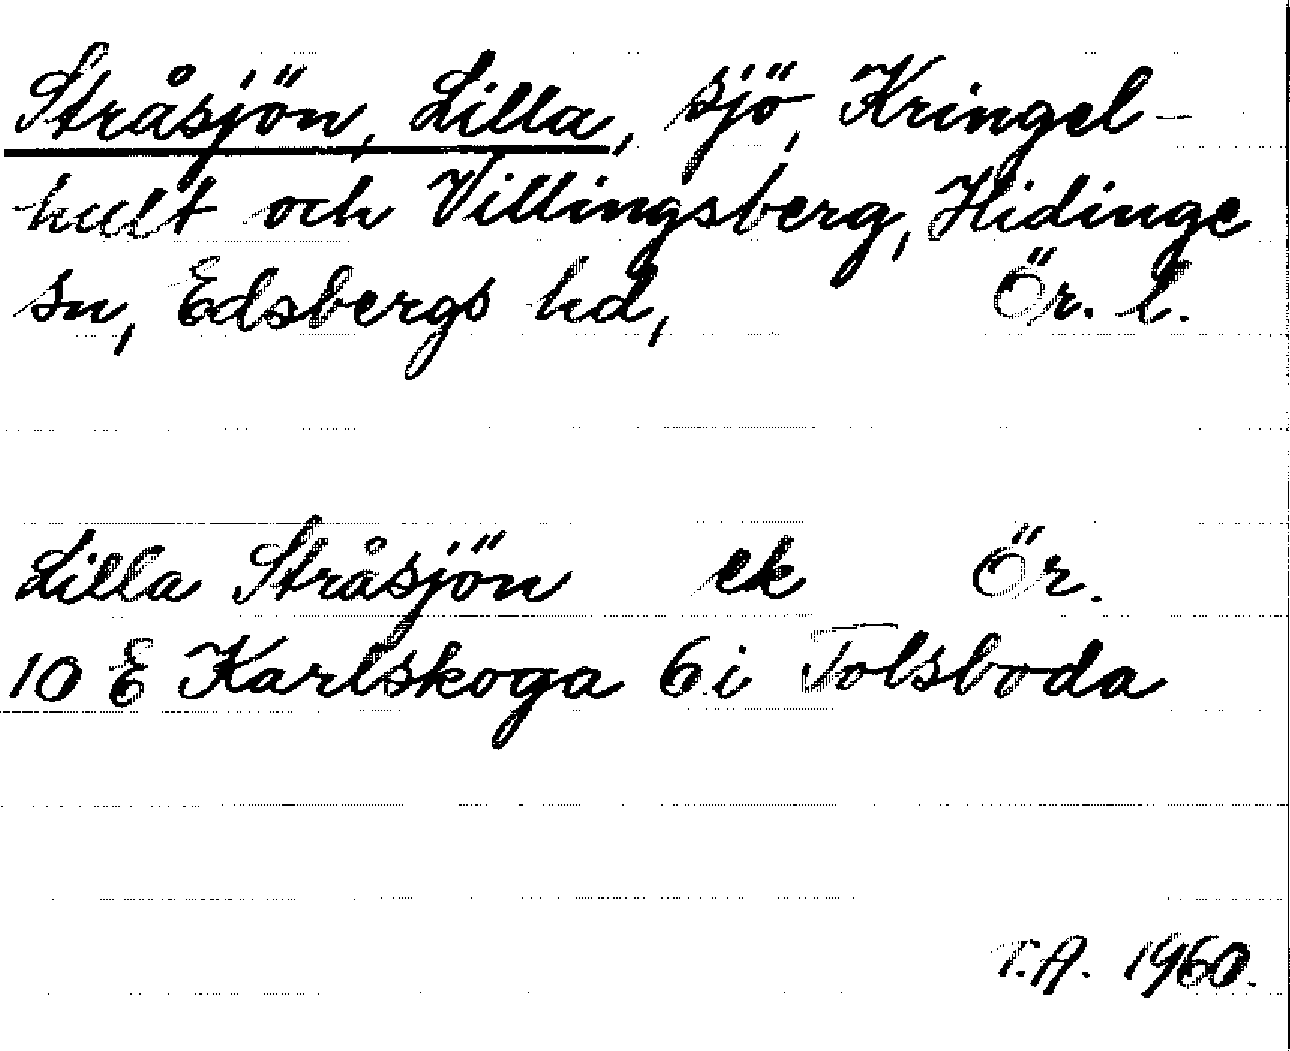 Stråsjön, Lilla, sjö, Kringel-
hult och Villingsberg, Hidinge
sn, Edsbergs hd, Ör. l.
Lilla Stråsjön ek Ör.
10 E Karlskoga 6 i Tolsboda
T.A. 1960.